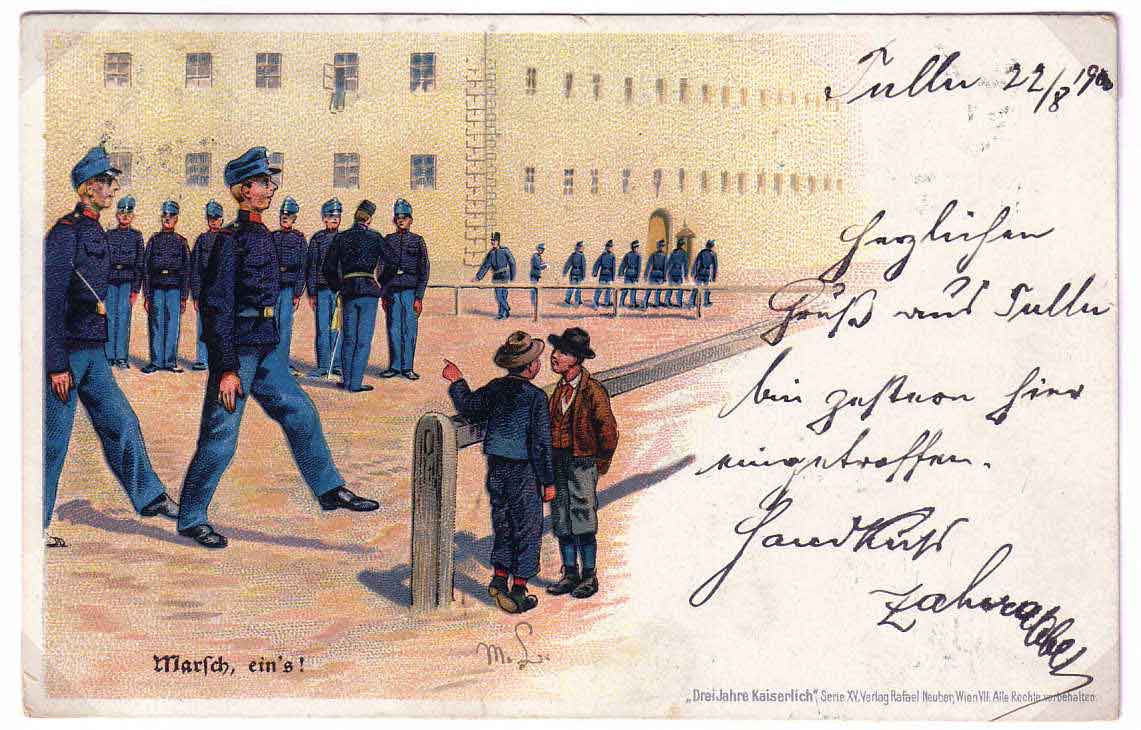 Tulln 22/8 1900
Herzlichen
Gruß aus Tulln
bin gestern hier
eingetroffen.
Handkuss
Marsch, ein's!
„Drei Jahre Kaiserlich“, Serie XV. Verlag Rafael Neuber, Wien VII. Alle Rechte vorbehalten.